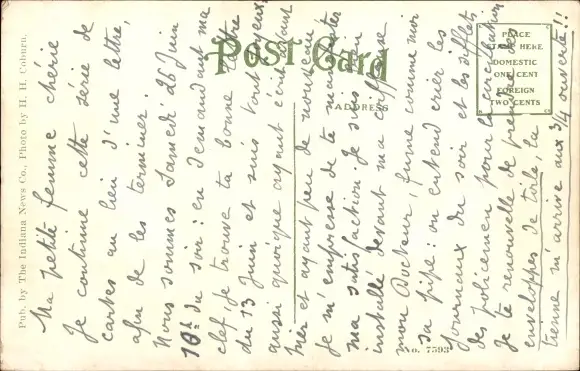 Post Card
ADDRESS
PLACE
STAMP HERE
DOMESTIC
ONE CENT
FOREIGN
TWO CENTS
Pub. by The Indiana News Co., Photo by H. H. Coburn.
No. 7593
Ma petite femme chérie
Je continue cette série de
cartes au lieu d'une lettre,
afin de les terminer.
Nous sommes Samedi 26 Juin
10h. du soir: en demandant ma
clef, je trouve ta bonne lettre
du 13 Juin et suis tout joyeux,
aussi quoique ayant écrit avant
hier et ayant peu de nouveau
je m'empresse de te manifester
ma satisfaction. Je suis
installé devant ma
mon Docteur, fume comme moi
sa pipe: on entend crier les
journaux du soir et les sifflets
des policemen pour la circulation
Je te renouvelle de prendre des
enveloppes de toile, la
tienne m'arrive aux 3/4 ouverte!!